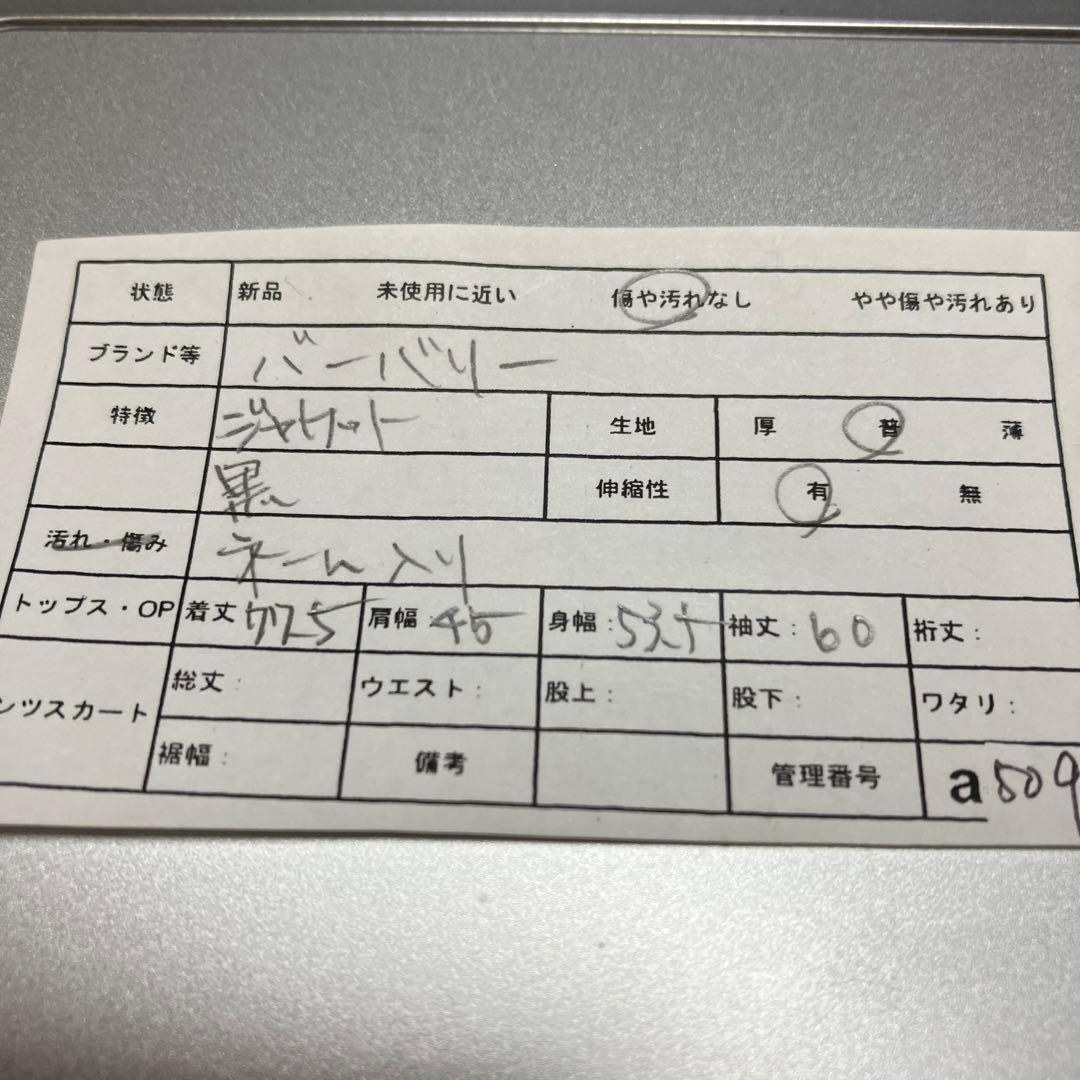 状態 新品 未使用に近い 傷や汚れなし やや傷や汚れあり
ブランド等 バーバリー
特徴 ジャケット 生地 厚 普 薄
黒 伸縮性 有 無
汚れ・傷み ネーム入り
トップス・OP 着丈 77.5 肩幅:45 身幅:53.5 袖丈:60 裄丈:
ンツスカート 総丈: ウエスト: 股上: 股下: ワタリ:
裾幅: 備考 管理番号 a509